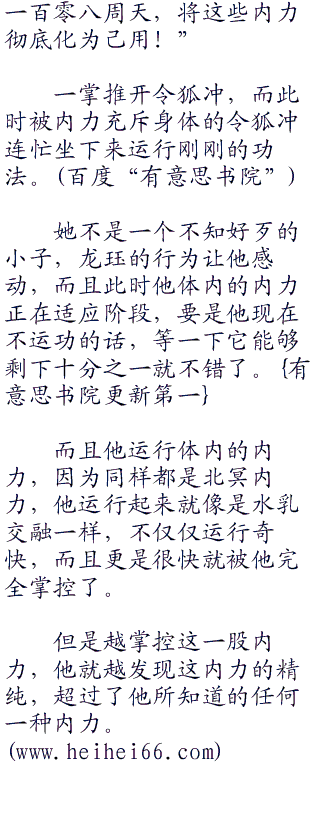 一百零八周天，将这些内力
彻底化为己用！”
一掌推开令狐冲，而此
时被内力充斥身体的令狐冲
连忙坐下来运行刚刚的功
法。(百度“有意思书院”)
她不是一个不知好歹的
小子，龙珏的行为让他感
动，而且此时他体内的内力
正在适应阶段，要是他现在
不运功的话，等一下它能够
剩下十分之一就不错了。{有
意思书院更新第一}
而且他运行体内的内
力，因为同样都是北冥内
力，他运行起来就像是水乳
交融一样，不仅仅运行奇
快，而且更是很快就被他完
全掌控了。
但是越掌控这一股内
力，他就越发现这内力的精
纯，超过了他所知道的任何
一种内力。
(www.heihei66.com)